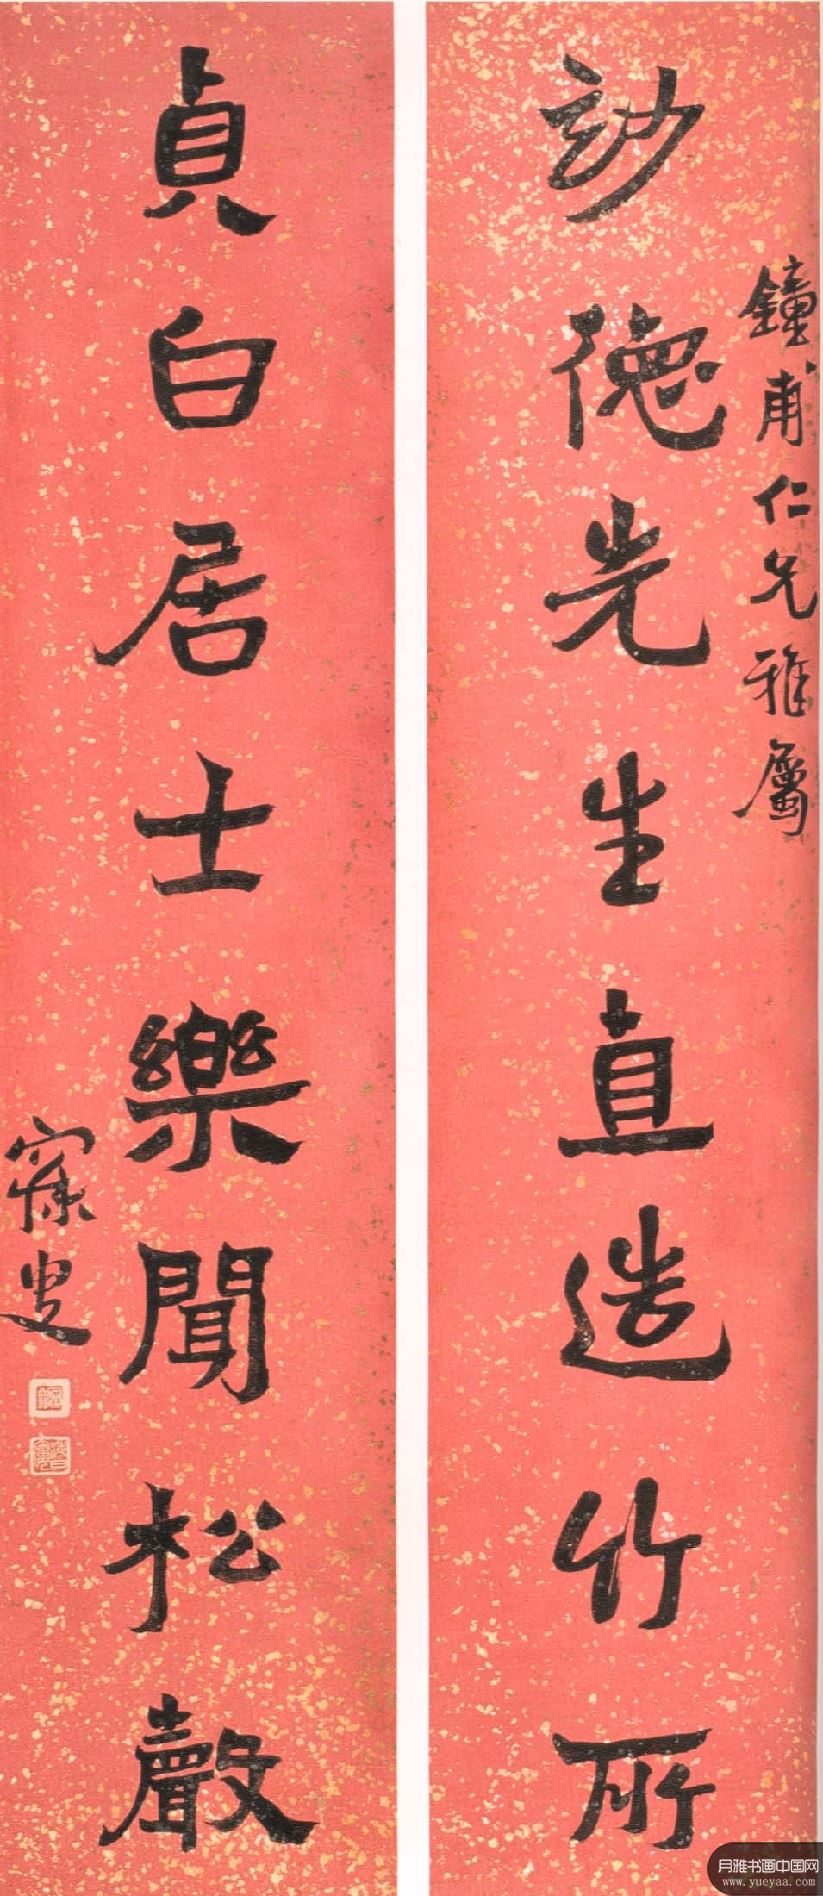 鐘甫仁兄雅屬
玅德先生直造竹所
貞白居士樂聞松聲
寐叟
月雅书画中国网
www.yueyaa.com